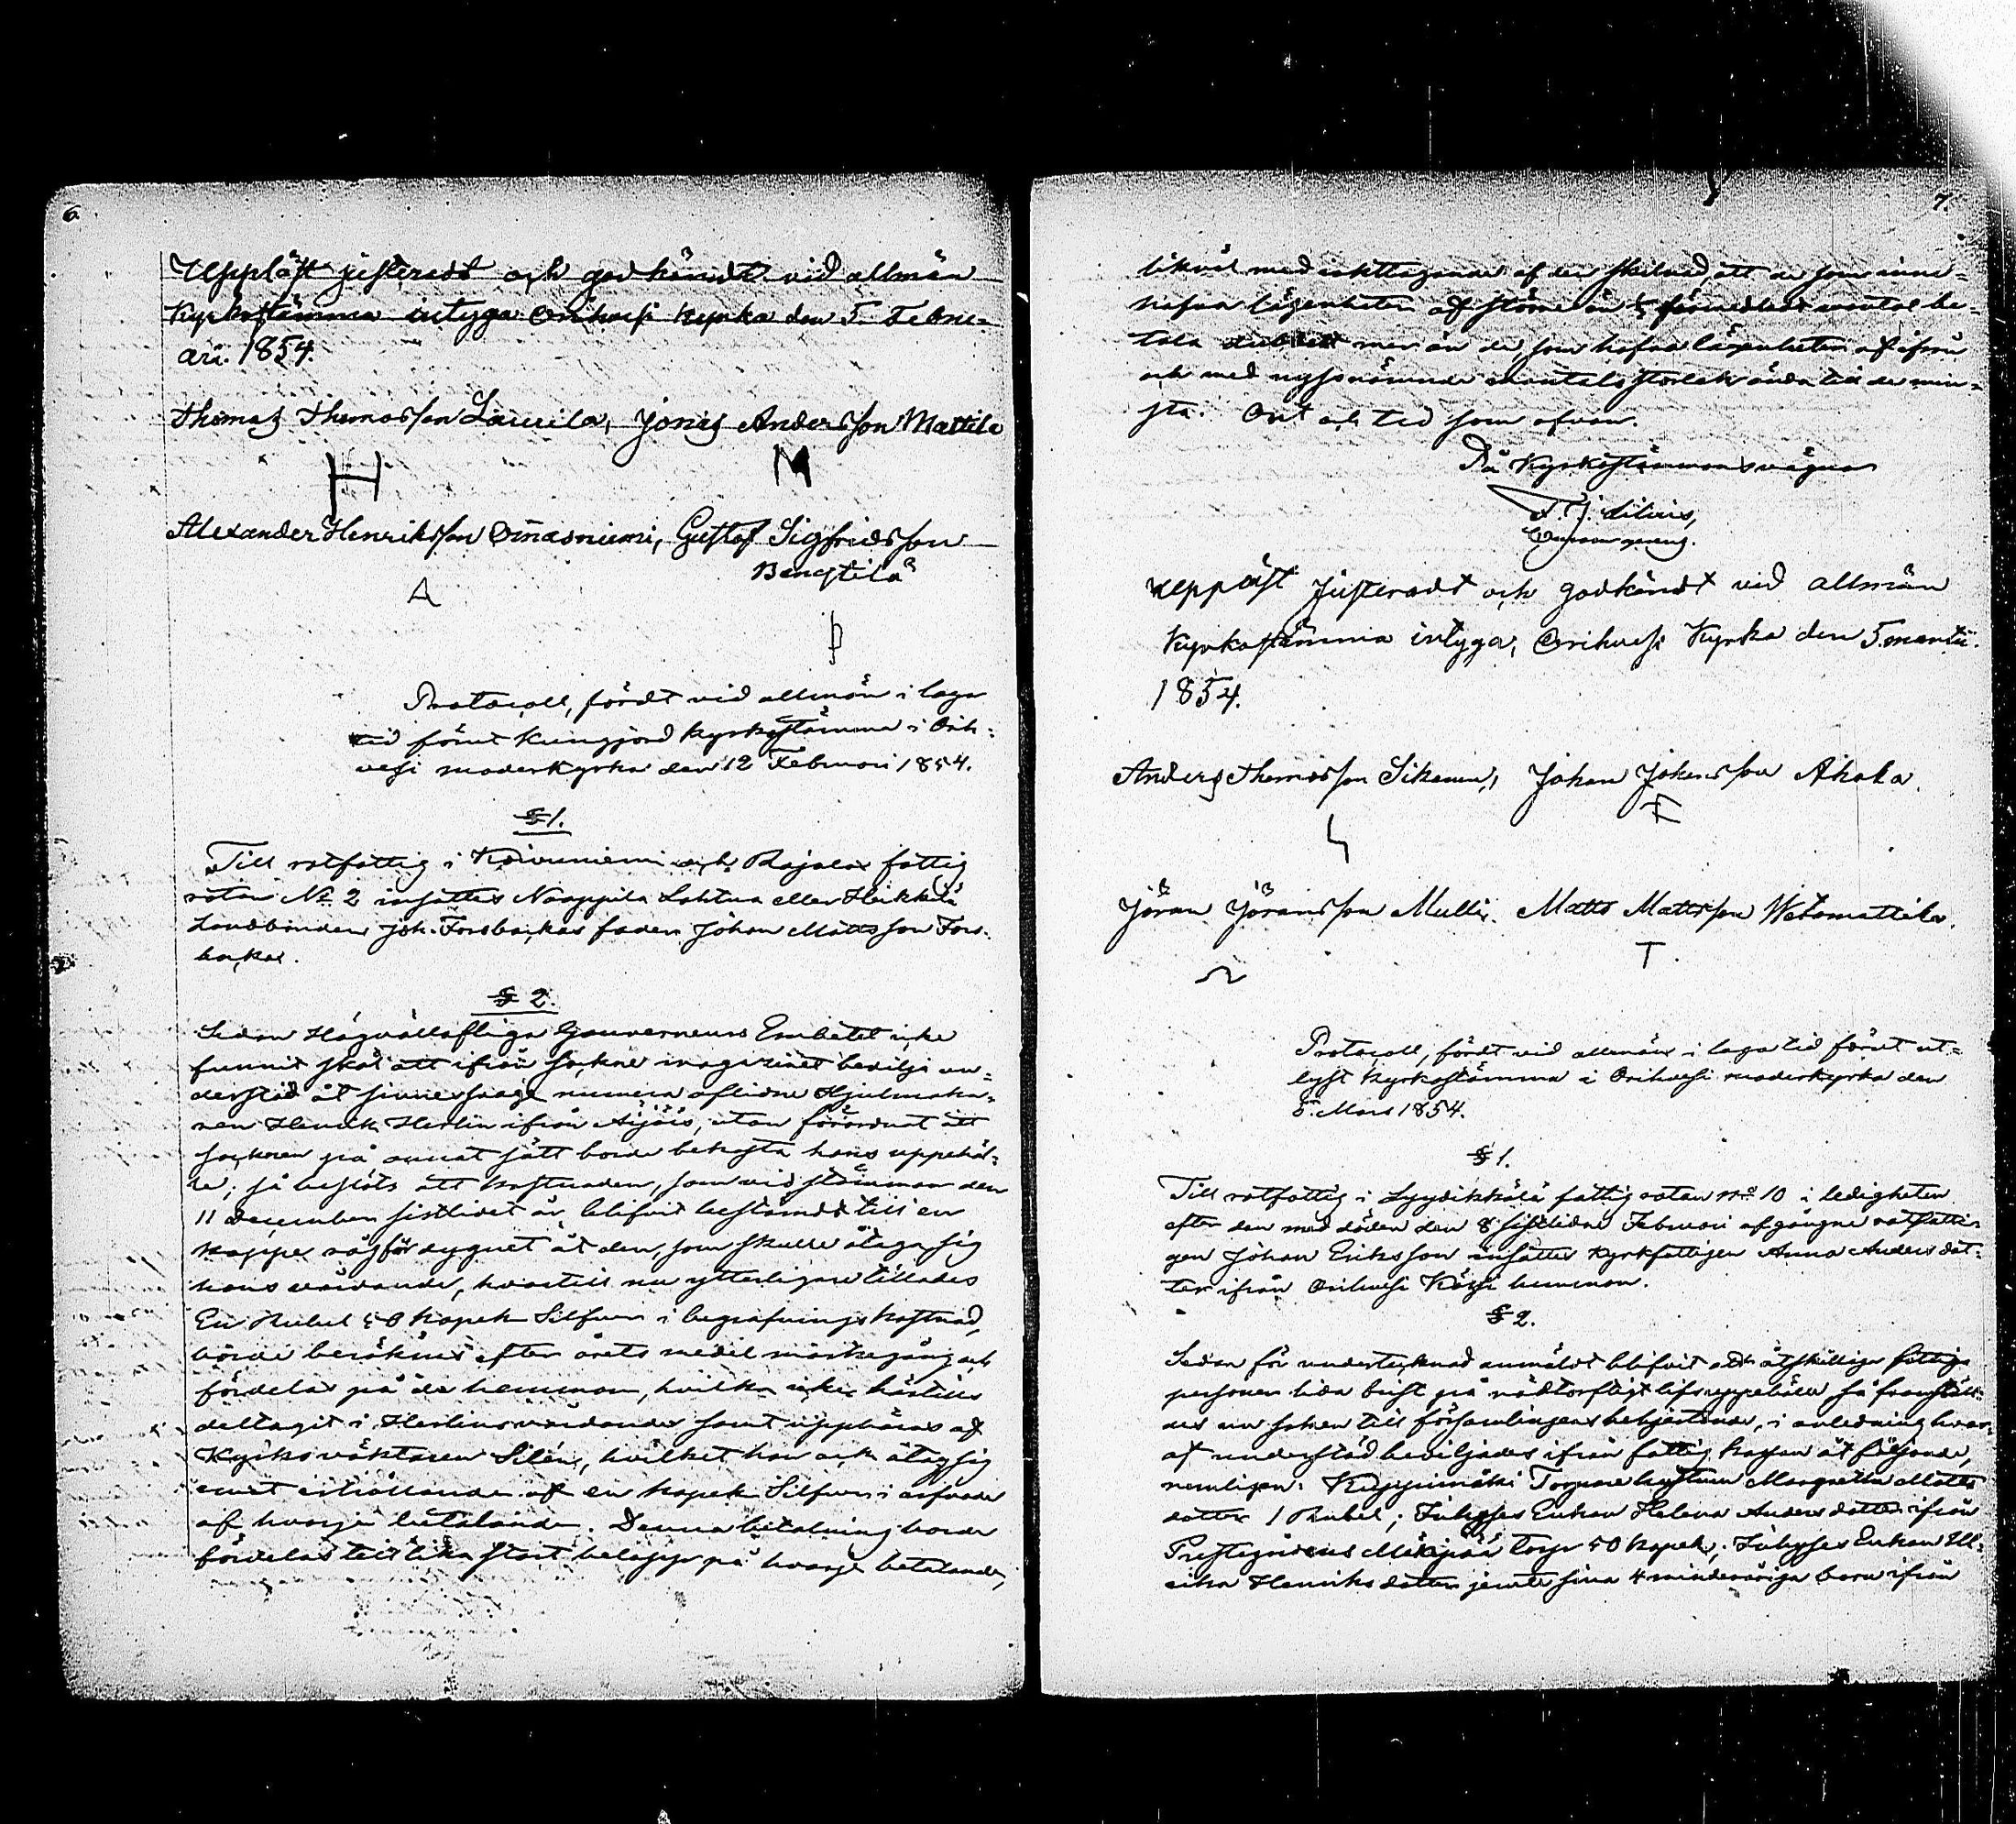 6.
Uppläst justeradt och godkändt vid allmän
Kyrkostämma intyga Orihvesi Kyrka den 5. Febru-
ari. 1854.
Thomas Thomasson Laurila, Jonas Andersson Mattila
H M
Alexander Henriksson Onnasniemi, Gustaf Sigfridsson
Bengtilä
A
Protocoll, fördt vid allmän i laga
tid förut kungjord kyrkostämma i Orih-
vesi moderkyrka den 12 Februari 1854.
§ 1.
Till rotfattig i Koivuniemi och Rajala fattig
rotan No 2 insattes Naappila Lahtua eller Heikkilä
Landbonden Joh. Forsbackas fader Johan Mattsson Fors-
backa.
§ 2.
Sedan Högvällofliga Gouverneurs Embetet icke
funnit skäl att ifrån sockne magazinet bevilja un-
derstöd åt sinnessvage numera aflidne Hjulmaka-
ren Henrik Herlin ifrån Äijäis, utan förordnat att
socknen på annat sätt borde bekosta hans uppehäl-
le; så beslöts att kostnaden, som vid stämman den
11 December sistlidet år blifvit bestämdt till en
kappe råg för dygnet åt den, som skulle åtaga sig
hans vårdande, hvartill nu ytterligare tillades
En Rubel 50 kopek Silfver i begrafnings kostnad,
borde beräknas efter årets medel markegång och
fördelas på de hemman, hvilka icke härtills
deltagit i Herlins vårdande samt uppbäras af
Kyrkovaktaren Silén, hvilket han ock åtog sig
emot erhållande af en kopek Silfver i arfvode
af hvarje betalande. Denna betalning borde
fördelas till lika stort belopp på hvarje betalande,
7.
likväl med iakttagande af den skilnad att de som inne-
hafva lägenheter af större än förmedladt mantal be-
tala mer än de som hafva lägenheter af ifrån
och med nyssnämnde mantals storlek ända till de min-
sta. Ort och tid som ofvan.
På Kyrkostämmans vägnar
Uppläst Justeradt och godkändt vid allmän
Kyrkostämma intyga, Orihvesi Kyrka den 5. martii.
1854.
Anders Thomasson Sikanen, Johan Johansson Ahola.
Jöran Jöransson Mulli. Matts Mattsson Wetomattila.
T
Protocoll, fördt vid allmän i laga tid förut ut-
lyst Kyrkostämma i Orihvesi moderkyrka den
5. Mars 1854.
§ 1.
Till rotfattig i Lyydikkälä fattig rotan No 10 i ledigheten
efter den med döden den 8 sistlidne Februari afgångne rotfatti-
gen Johan Eriksson insattes kyrkfattigen Anna Anders dot-
ter ifrån Orihvesi hemman.
§ 2.
Sedan för undertecknad anmäldt blifvit att åtskillige fattige
personer lida brist på nödtorftigt lifsuppehälle, så framställ-
des nu saken till församlingens behjertande, i anledning hvar-
af understöd beviljades ifrån fattig kassan åt följande,
nemligen: Torpare hustrun Margretha Matts
dotter 1 Rubel; Inhyses Enkan Helena Anders dotter ifrån
Prestegårdens Mäkipää torp 50 kopek; Inhyses Enkan Ul-
rika Henriks dotter jemte sina 4 minderåriga barn ifrån